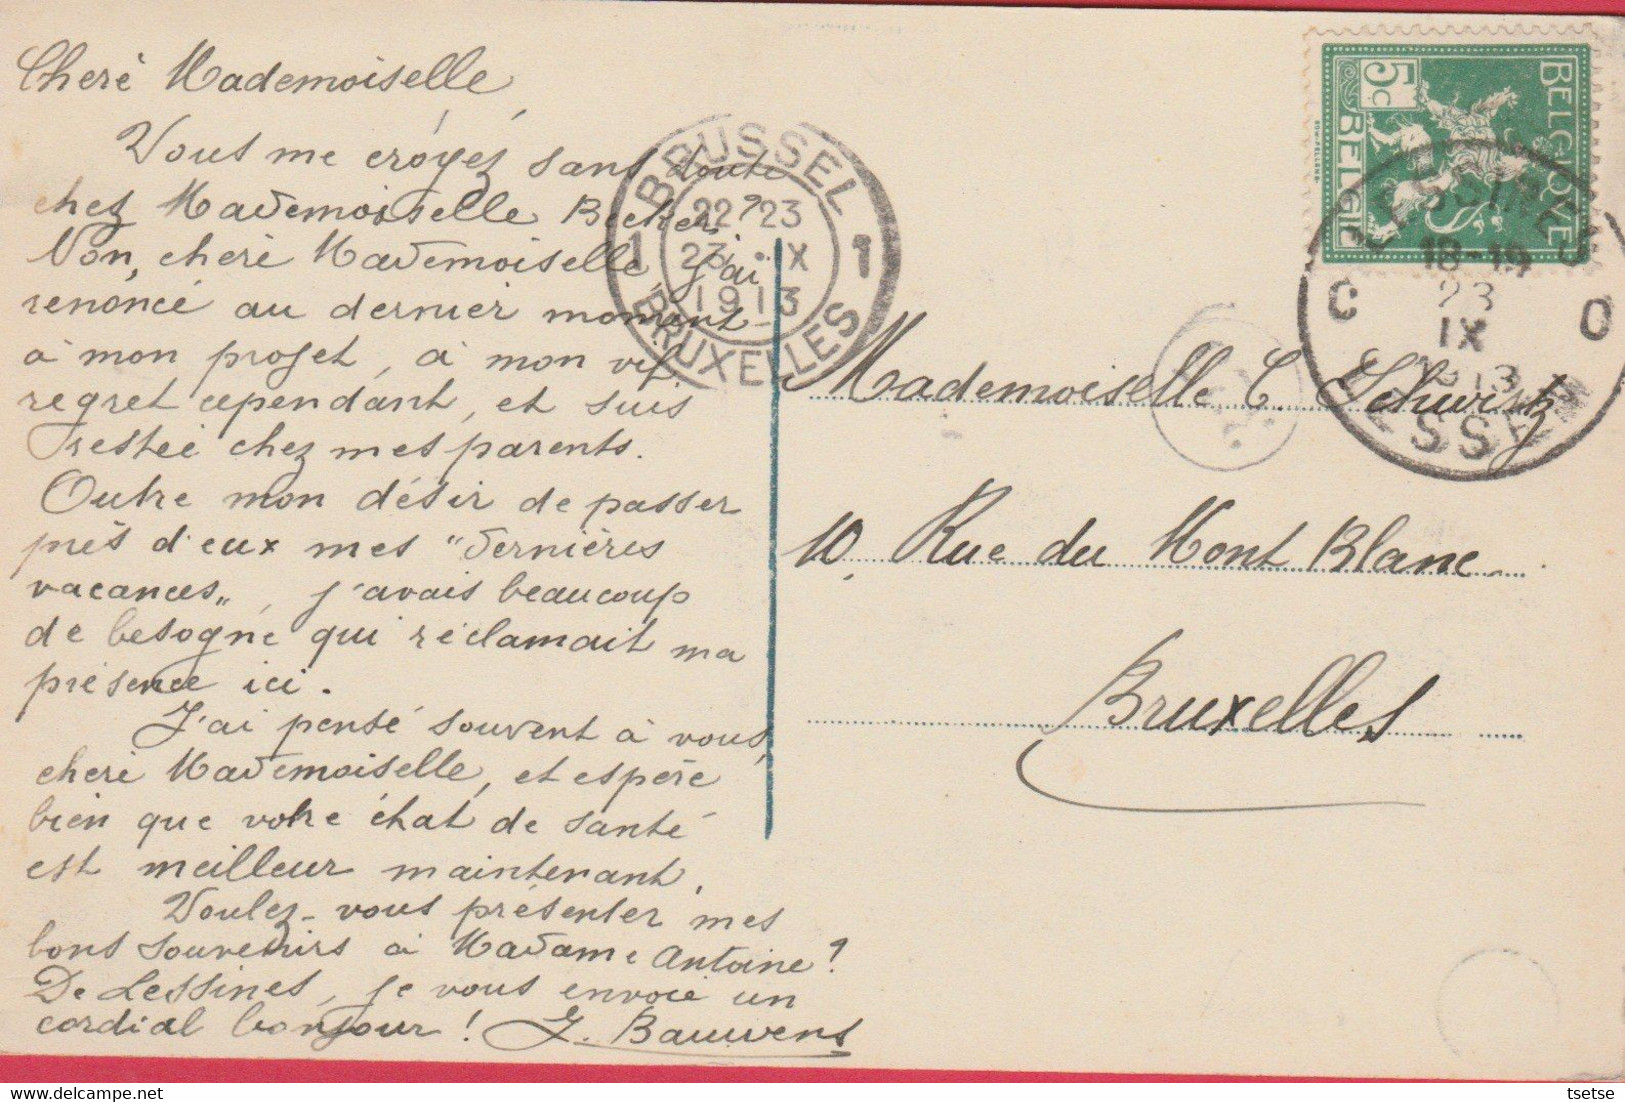 Cherè Mademoiselle,
Vous me croyez sans doute
chez Mademoiselle Becker?
Non, cherè Mademoiselle, j'ai
renoncé au dernier moment
à mon projet, à mon vif
regret cependant, et suis
restée chez mes parents.
Outre mon désir de passer
près d'eux mes "dernières
vacances", j'avais beaucoup
de besogne qui réclamait ma
présence ici.
J'ai pensé souvent à vous,
cherè Mademoiselle, et espère
bien que votre état de santé
est meilleur maintenant.
Voulez-vous présenter mes
bons souvenirs à Madame Antoine?
De Lessines, je vous envoie un
cordial bonjour! J. Bauwens
BRUSSEL
22-23
23 IX
1913
1 1
BRUXELLES
5c
BELGIQUE
BELGIË
LESSINES
18-19
23
IX
1913
C C
LESSEN
Mademoiselle C. Schwirtz
10, Rue du Mont Blanc
Bruxelles
tsetse